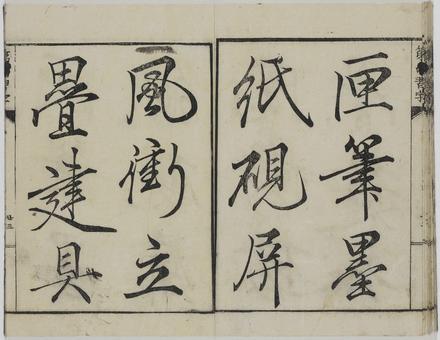 匣筆墨
紙硯屏
風衝立
畳建具